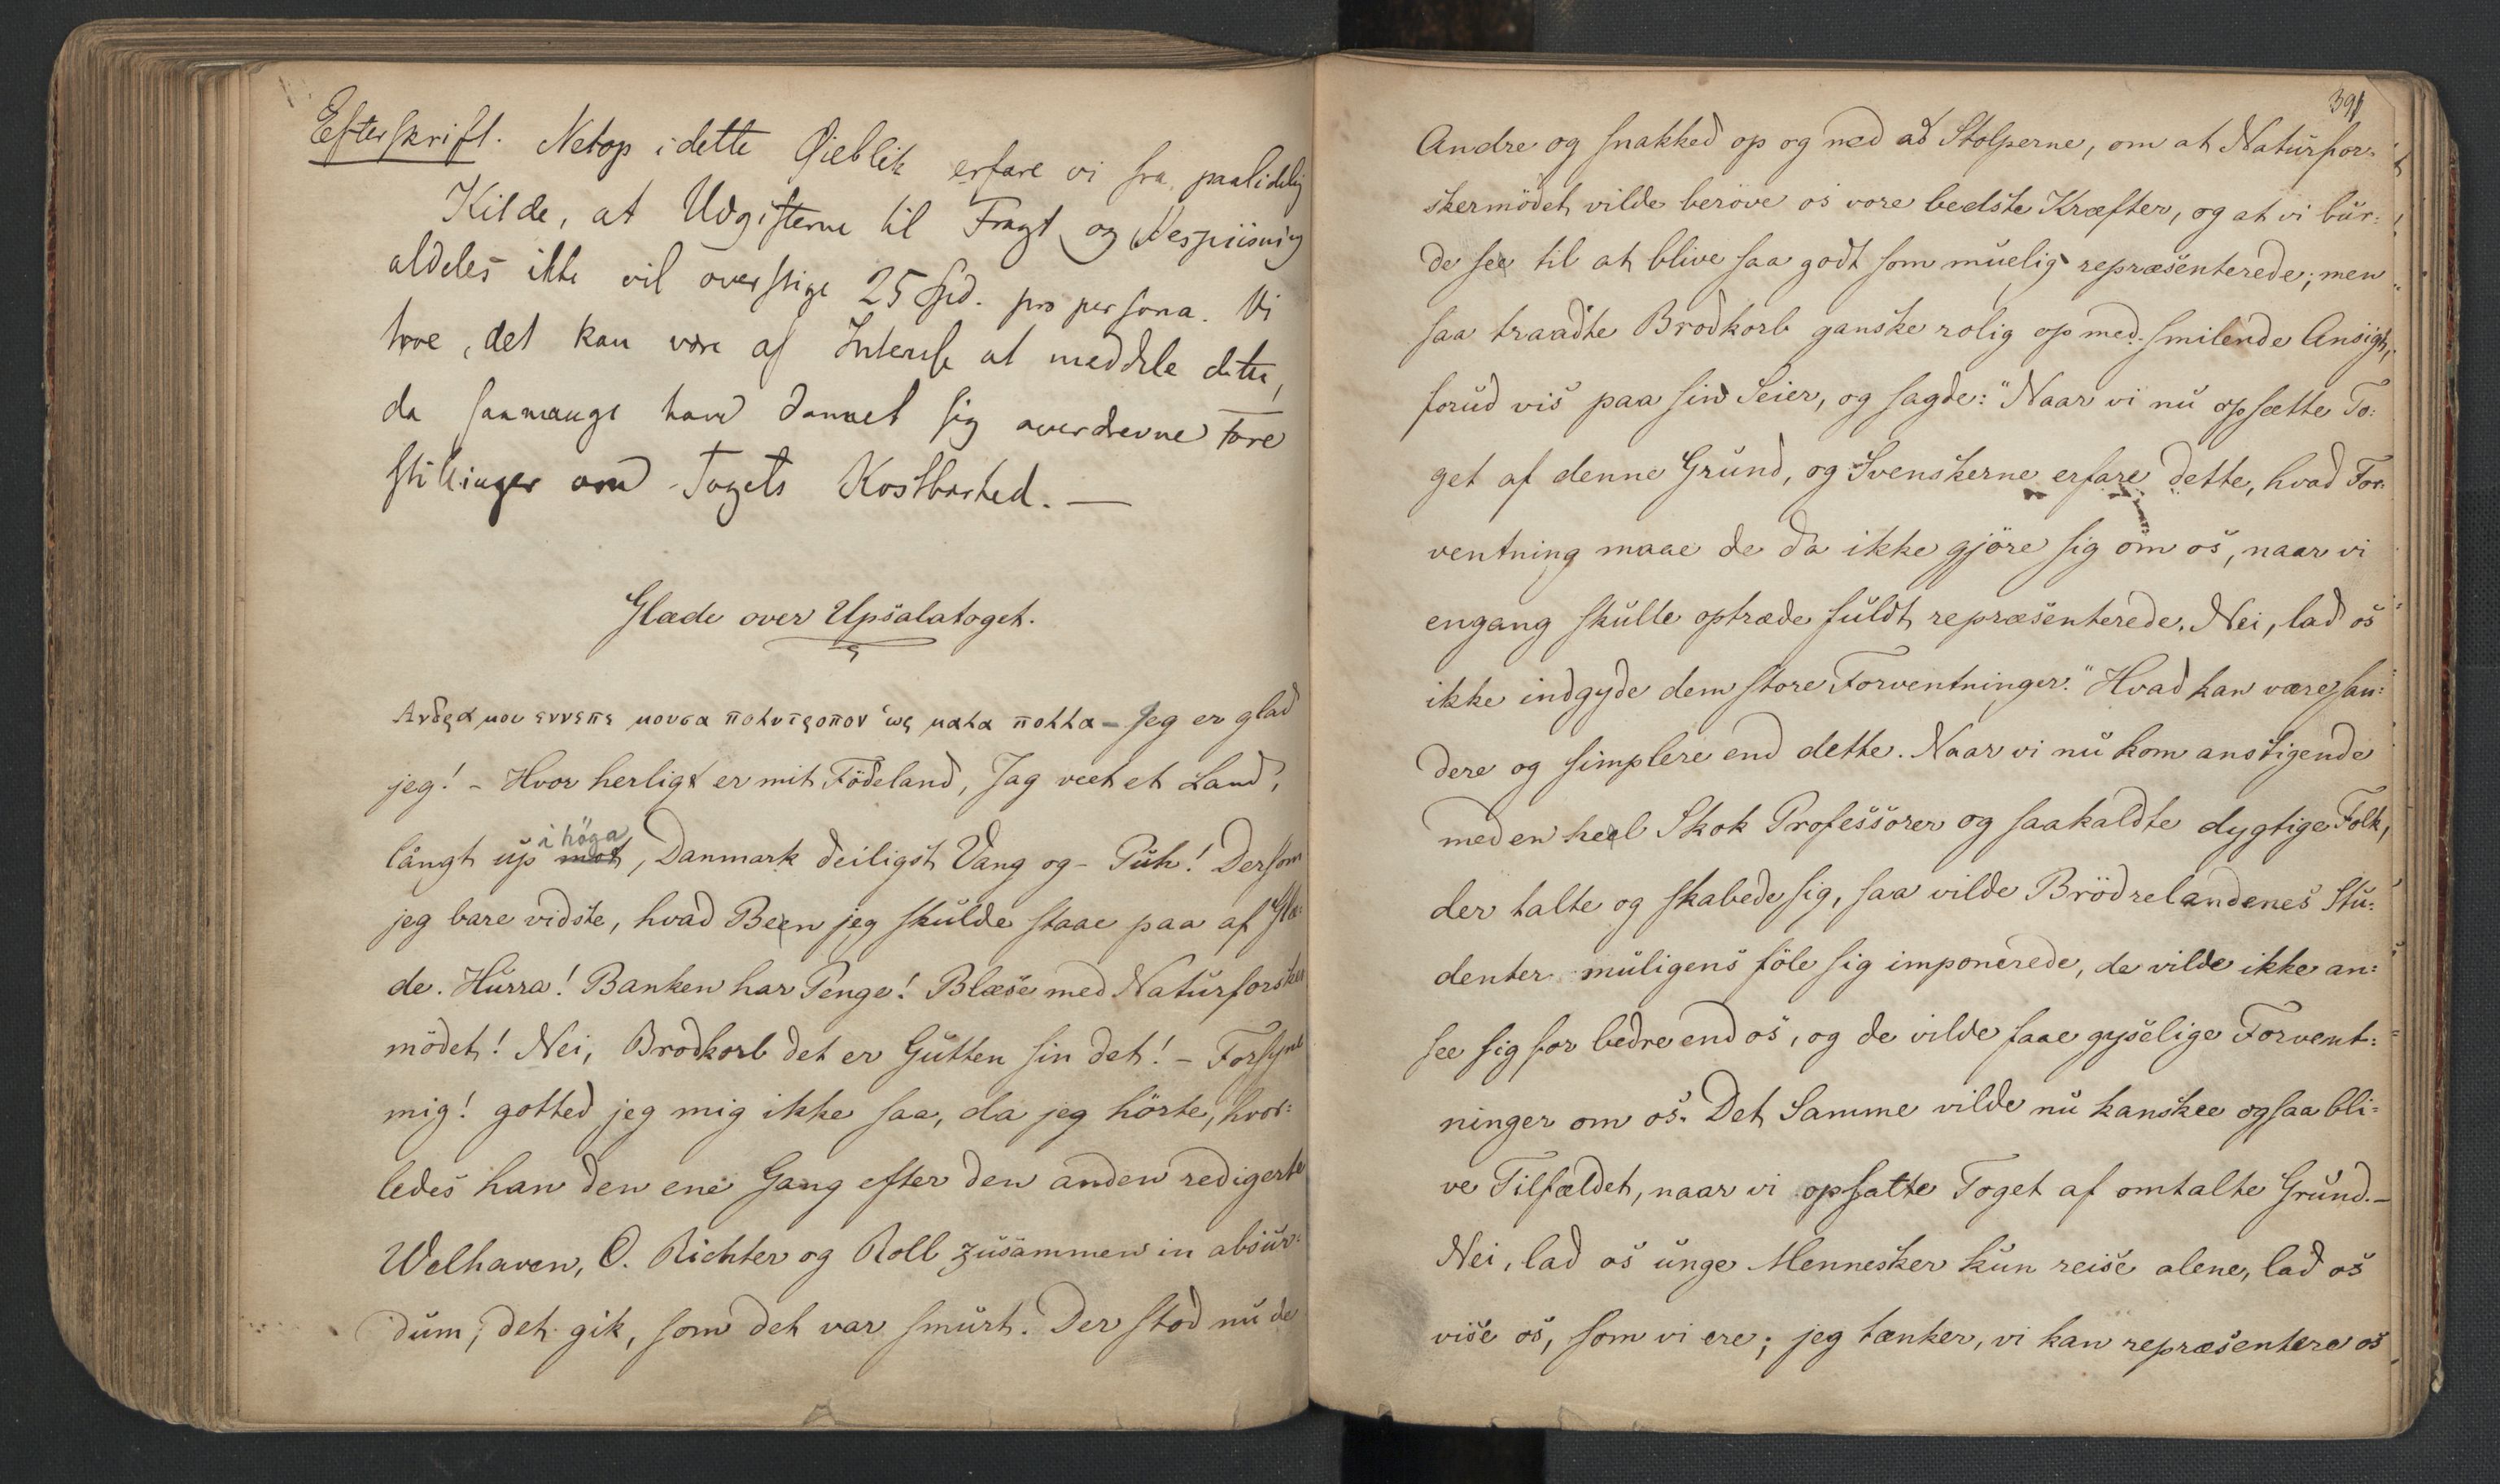 Efterskrift. Netop i dette Øieblik erfare vi fra paalidelig
Kilde, at Udgifterne til Fragt og Bespiisning
aldeles ikke vil overstige 25 Spd. pro persona. Vi
troe, det kan være af Interesse at meddele dette,
da saamange have dannet sig overdrevne Fore
stillinger om Togets Kostbarhed. —
Glæde over Upsalatoget.
Ανδρα μου εννεπε μουσα πολυτροπον ὡς μαλα πολλα – Jeg er glad
jeg! – Hvor herligt er mit Födeland, Jag veet et Land,
långt up i höga, Danmark deiligst Vang og – Puh! Dersom
jeg bare vidste, hvad Been jeg skulde staae paa af Glæ:
de. Hurra! Banken har Penge! Blæse med Naturforsker
mödet! Nei, Brodkorb det er Gutten sin det! – Forsynd
mig! gotted jeg mig ikke saa, da jeg hörte, hvor:
ledes han den ene Gang efter den anden redigerte
Welhaven, O. Richter og Roll zusammen in absur:
dum; det gik, som det var smurt. Der stod nu de
391
Andre og snakked op og ned ad Stolperne, om at Naturfor:
skermödet vilde beröve os vore bedste Kræfter, og at vi bur:
de see til at blive saa godt som muelig repræsenterede; men
saa traadte Brodkorb ganske rolig op med smilende Ansigt,
forud vis paa sin Seier, og sagde: "Naar vi nu opsætte To:
get af denne Grund, og Svenskerne erfare dette, hvad For:
ventning maae de da ikke gjöre sig om os, naar vi
engang skulle optræde fuldt repræsenterede. Nei, lad os
ikke indgyde dem store Forventninger." Hvad kan være san:
dere og simplere end dette. Naar vi nu kom anstigende
med en heel Skok Professorer og saakaldte dygtige Folk,
der talte og skabede sig, saa vilde Brödrelandenes Stu:
denter muligens föle sig imponerede, de vilde ikke an:
see sig for bedre end os, og de vilde faae gyselige Forvent:
ninger om os. Det Samme vilde nu kanskee ogsaa bli:
ve Tilfældet, naar vi opsatte Toget af omtalte Grund. –
Nei, lad os unge Mennesker kun reise alene, lad os
vise os, som vi ere; jeg tænker, vi kan repræsentere os